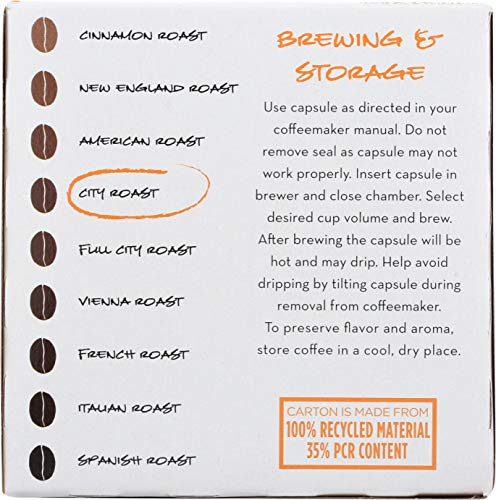 CINNAMON ROAST
NEW ENGLAND ROAST
AMERICAN ROAST
CITY ROAST
FULL CITY ROAST
VIENNA ROAST
FRENCH ROAST
ITALIAN ROAST
SPANISH ROAST
BREWING &
STORAGE
Use capsule as directed in your
coffeemaker manual. Do not
remove seal as capsule may not
work properly. Insert capsule in
brewer and close chamber. Select
desired cup volume and brew.
After brewing the capsule will be
hot and may drip. Help avoid
dripping by tilting capsule during
removal from coffeemaker.
To preserve flavor and aroma,
store coffee in a cool, dry place.
CARTON IS MADE FROM
100% RECYCLED MATERIAL
35% PCR CONTENT